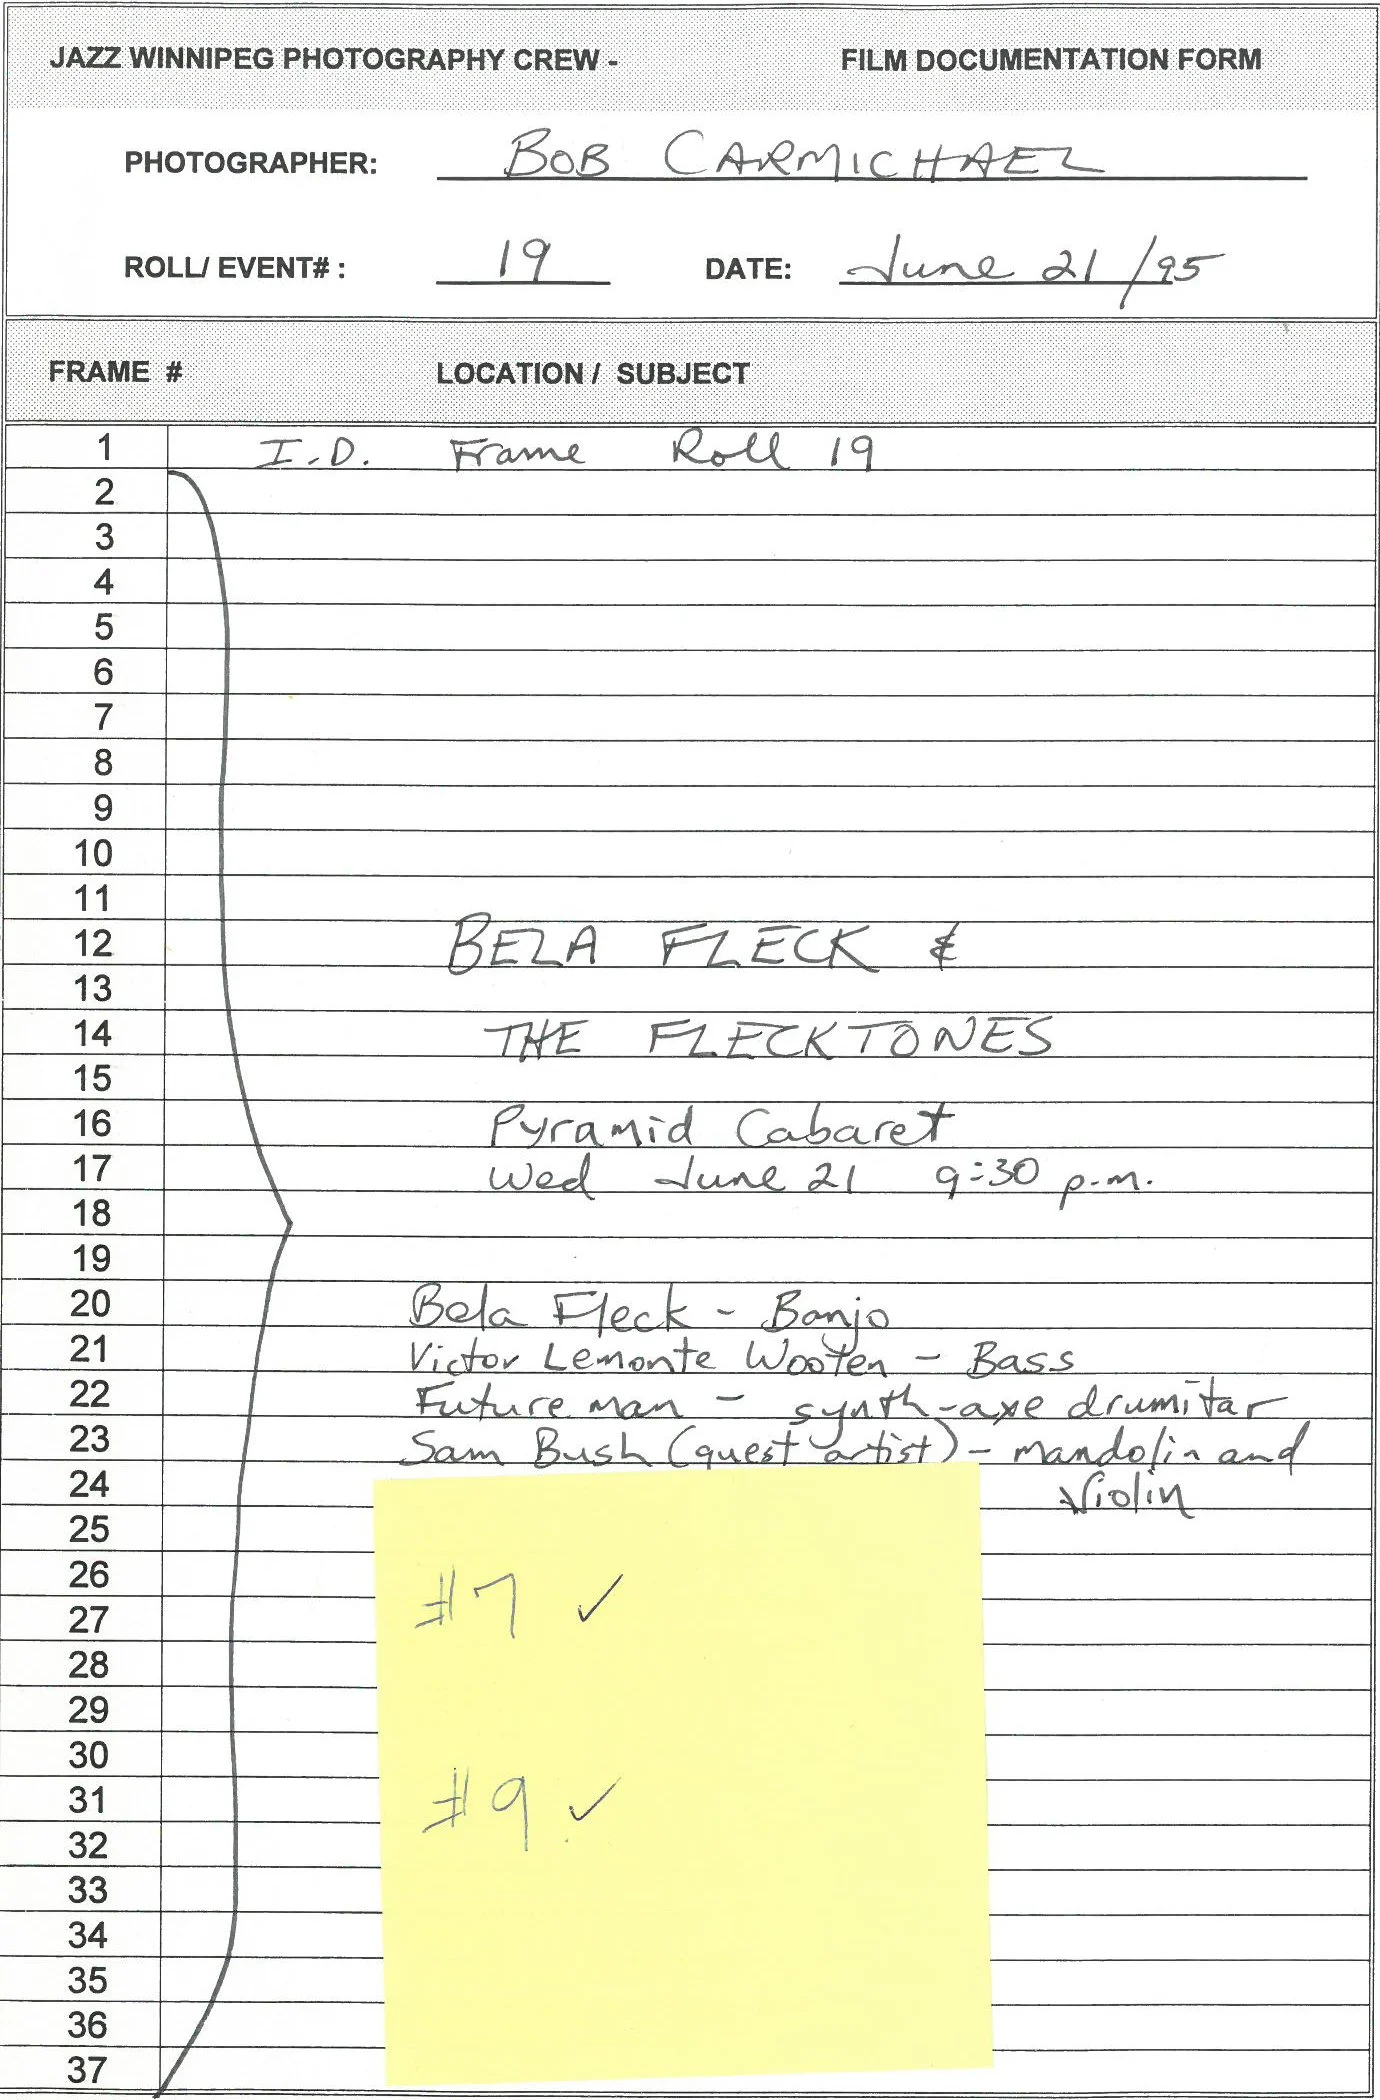 JAZZ WINNIPEG PHOTOGRAPHY CREW - FILM DOCUMENTATION FORM
PHOTOGRAPHER: BOB CARMICHAEL
ROLL/ EVENT# : 19 DATE: June 21/95
FRAME # LOCATION / SUBJECT
1 I.D. Frame Roll 19
2
3
4
5
6
7
8
9
10
11
12 BELA FLECK &
13
14 THE FLECKTONES
15
16 Pyramid Cabaret
17 Wed June 21 9:30 p.m.
18
19
20 Bela Fleck - Banjo
21 Victor Lemonte Wooten - Bass
22 Future man - synth-axe drumitar
23 Sam Bush (guest artist) - mandolin and
24 Violin
25
26
27 #7 ✓
28
29
30
31 #9 ✓
32
33
34
35
36
37